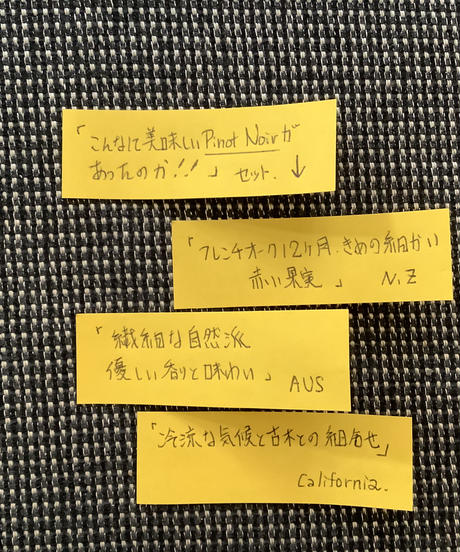 「こんなに美味しいPinot Noirが
あったのか!!」 セット. ↓
「フレンチオーク12ヶ月.きめの細かい
赤い果実」 N.Z
「繊細な自然派
優しい香りと味わい」 AUS
「冷涼な気候と古木との組合せ」
California.